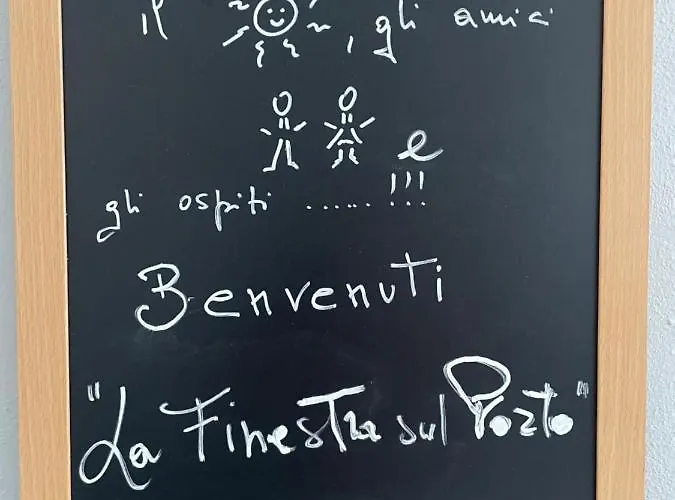 il , gli amici
e
gli ospiti ......!!!
Benvenuti
"La Finestra sul Porto"